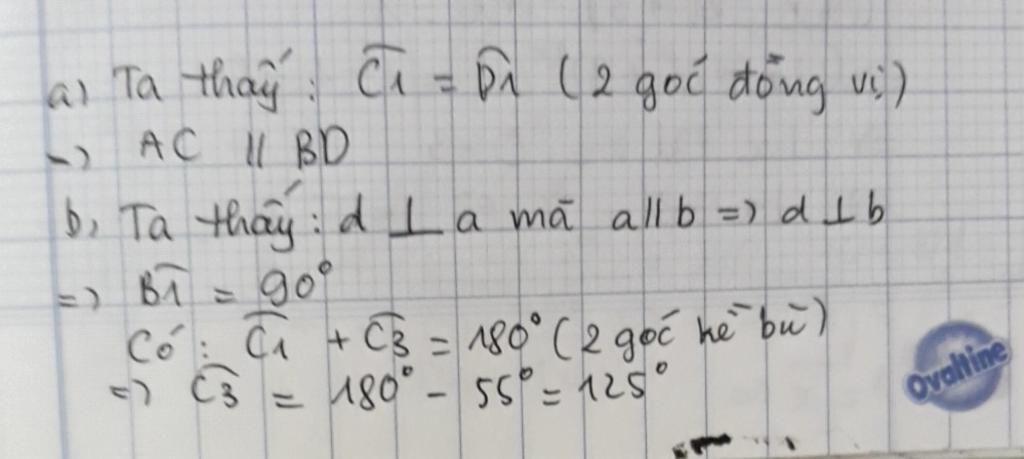 a) Ta thấy: Ĉ1 = D̂1 (2 góc đồng vị)
=> AC // BD
b, Ta thấy: d ⊥ a mà a // b => d ⊥ b
=> B̂1 = 90°
Có: Ĉ1 + Ĉ3 = 180° (2 góc kề bù)
=> Ĉ3 = 180° - 55° = 125°
Ovaltine